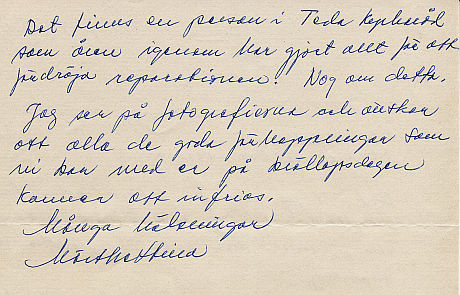 Det finns en person i Teda Kapknöd
som åren igenom har gjort allt för att
fördröja reparationen. Nog om detta.
Jag ser på fotografierna och önskar
att alla de goda förhoppningar som
ni bar med er på bröllopsdagen
kommer att infrias.
Många hälsningar